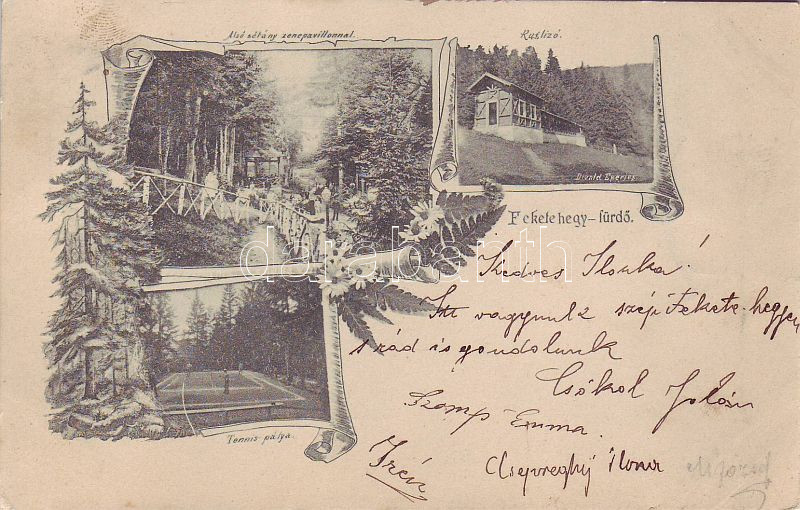 Alsó sétány zenepavillonnal.
Kuglizó.
Divald Eperjes.
Fekete hegy-fürdő.
darabanth
Kedves Ilonka!
Itt vagyunk a szép Fekete-hegyen
s rád is gondolunk
Csókol Jolán
Szomp Emma.
Irén
Ilona
Tennis pálya.